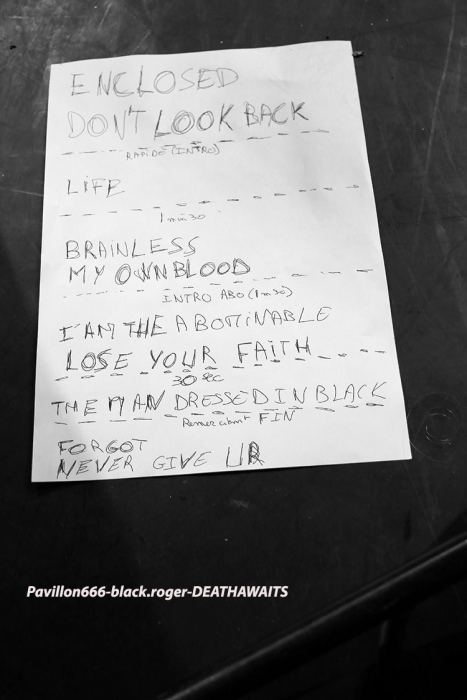 ENCLOSED
DON'T LOOK BACK
RAPIDE (INTRO)
LIFE
1 min 30
BRAINLESS
MY OWN BLOOD
INTRO ABO (1m30)
I'AM THE ABOMINABLE
LOSE YOUR FAITH
30 sec
THE MAN DRESSED IN BLACK
FIN
FORGOT
NEVER GIVE UP
Pavillon666-black.roger-DEATHAWAITS